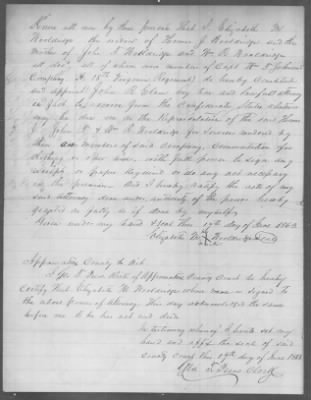 Know all men by these presents that I Elizabeth M
Wooldridge the widow of Thomas J Wooldridge and the
Mother of John T Wooldridge and Wm R Wooldridge
all decd. all of whom were members of Capt Wm T Johnson's
Company H. 18th Virginia Regiment do hereby constitute
and appoint John R Glenn my true and lawful attorney
in fact to receive from the Confederate States whatever
may be due me as the Representative of the said Thomas
J John T & Wm R Wooldridge for services rendered by
them as members of said Company, Commutation for
clothing or other dues, with full power to sign any
receipts or paper required or do any act necessary
in the premises. And I hereby ratify the acts of my
said attorney done under authority of the power hereby
granted as fully as if done by myself.
Given under my hand & seal this 19th day of June 1863
Elizabeth M Wooldridge Seal
Appomattox County to Wit.
I Clerk of Appomattox County Court do hereby
Certify that Elizabeth M Wooldridge whose name is signed to
the above power of attorney this day acknowledged the same
before me to be her act and deed.
In testimony whereof I hereto set my
hand and affix the seal of said
County Court this 19th day of June 1863
Clerk